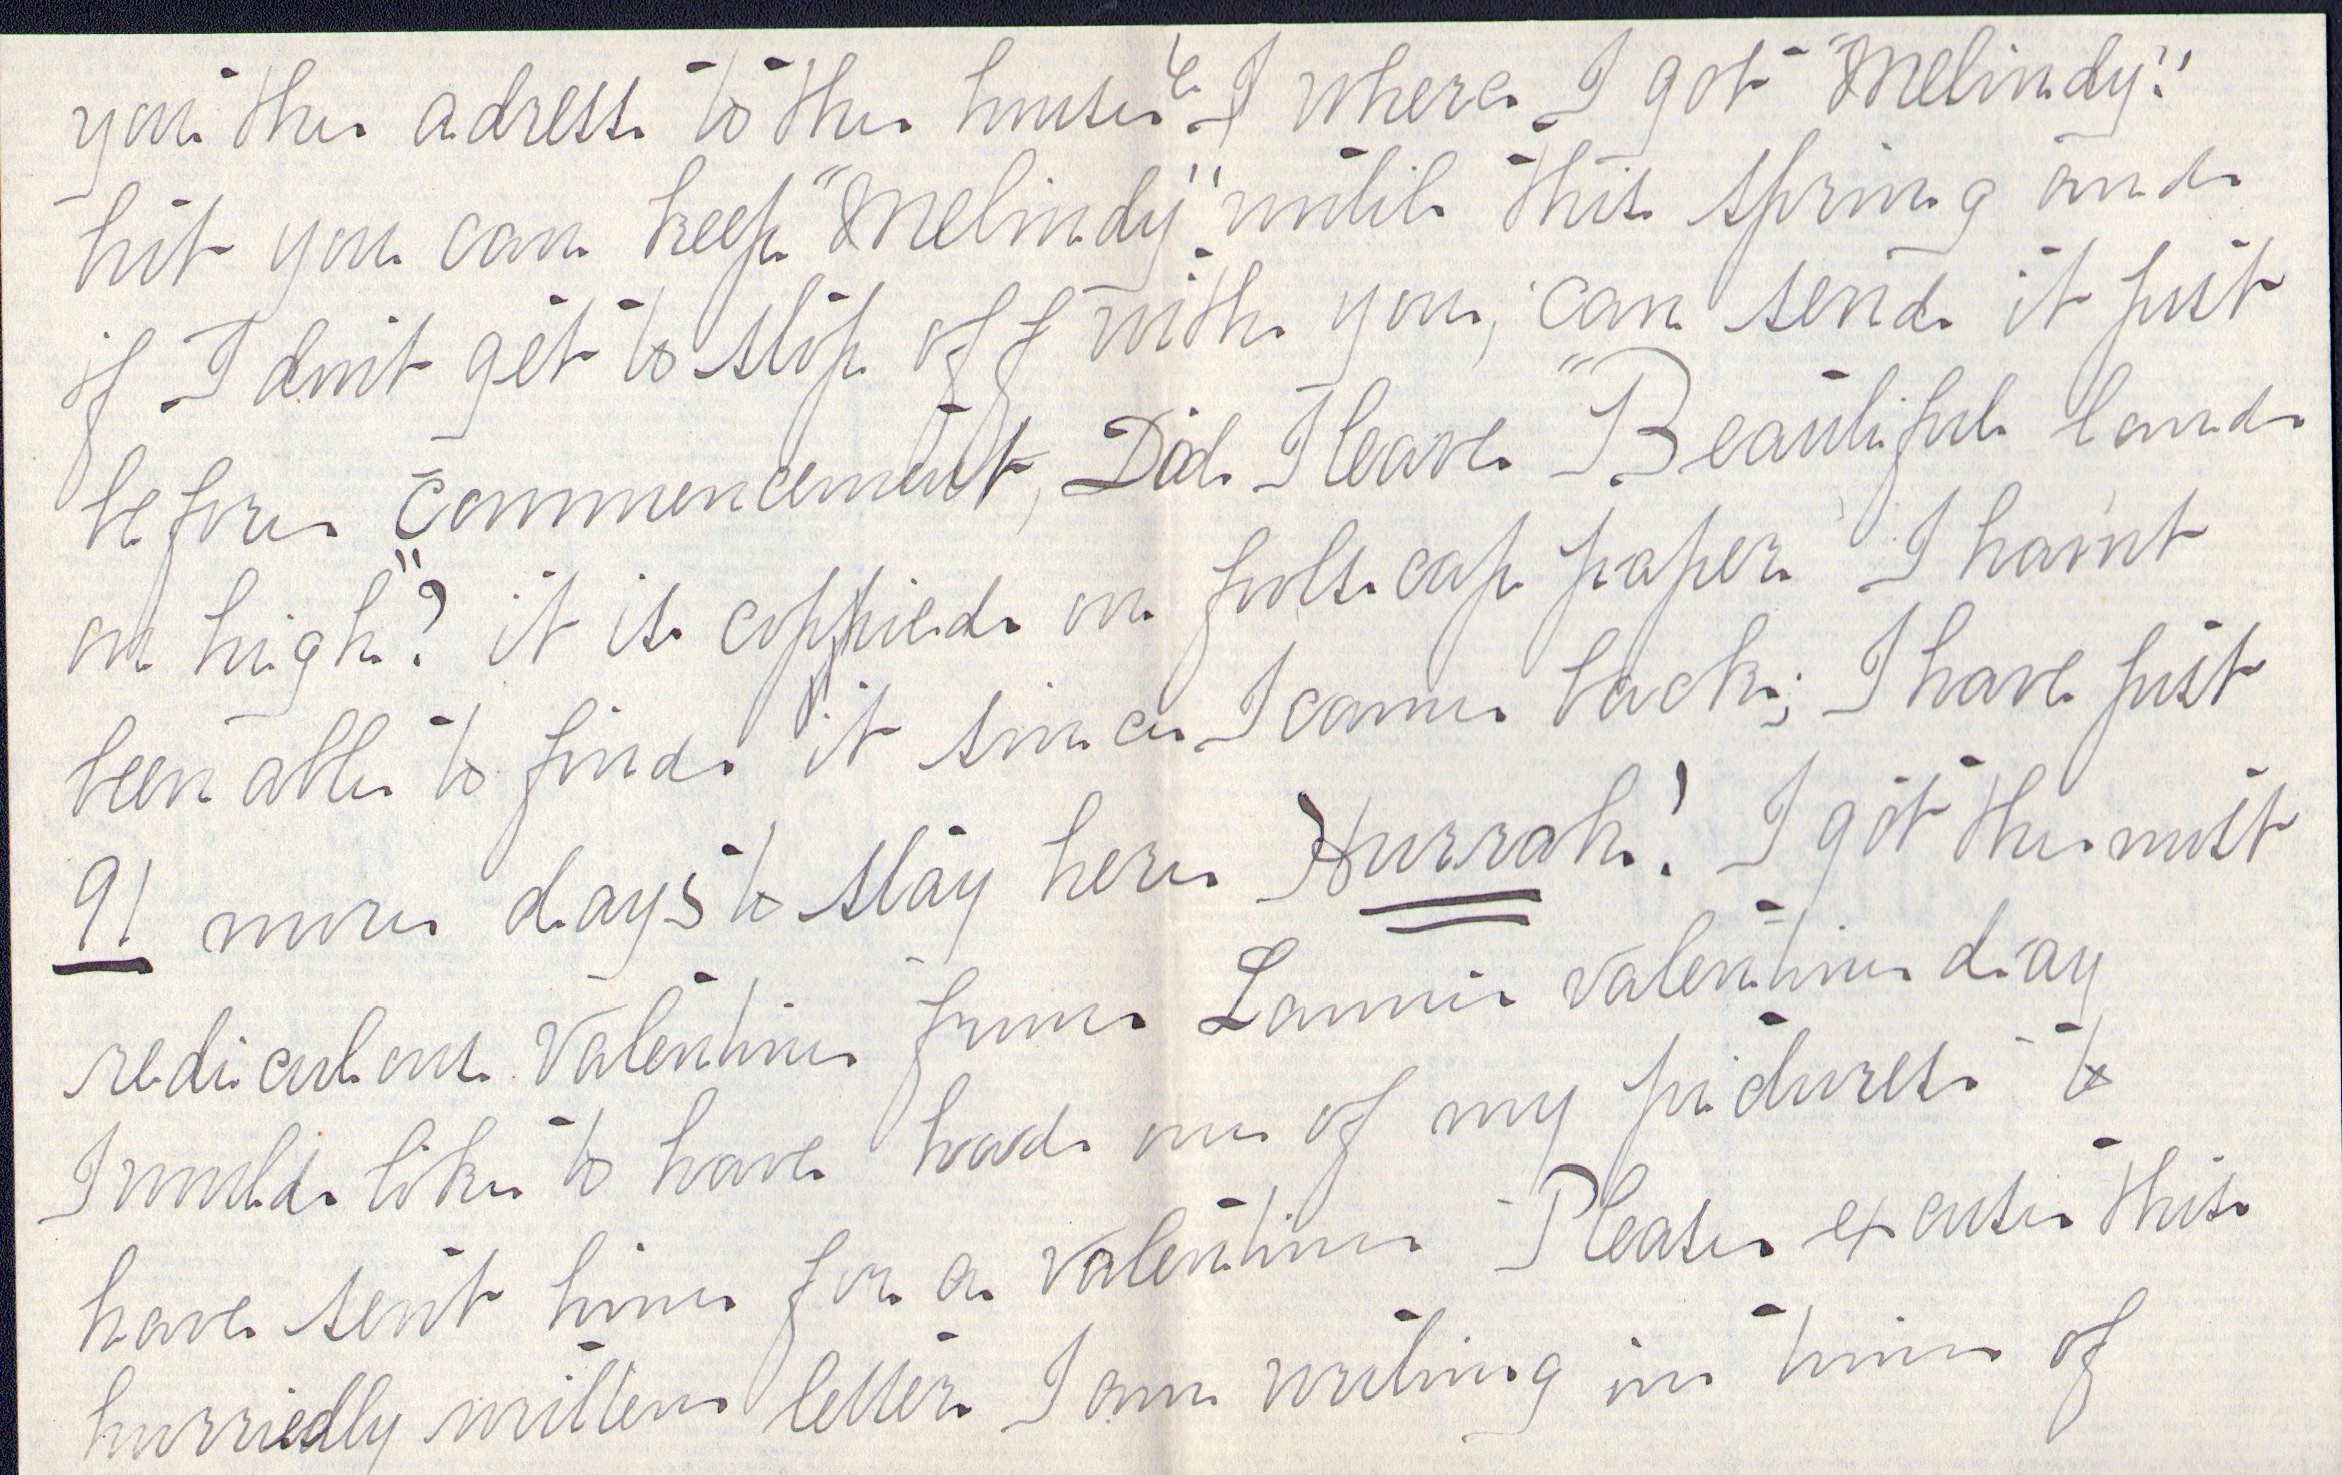 you the adress to the house I where I got "Melindy".
but you can keep "Melindy" until this spring and
if I don't get to stop off with you, can send it just
before commencement, Did I leave "Beautiful land
on high"? it is coppied on foolscap paper I hain't
been able to find it since I came back; I have just
91 more days to stay here Hurrah! I got the most
rediculous valentine from Lannie valentine day
I would like to have had one of my pictures to
have sent him for a valentine Please excuse this
hurriedly written letter I am writing in time of